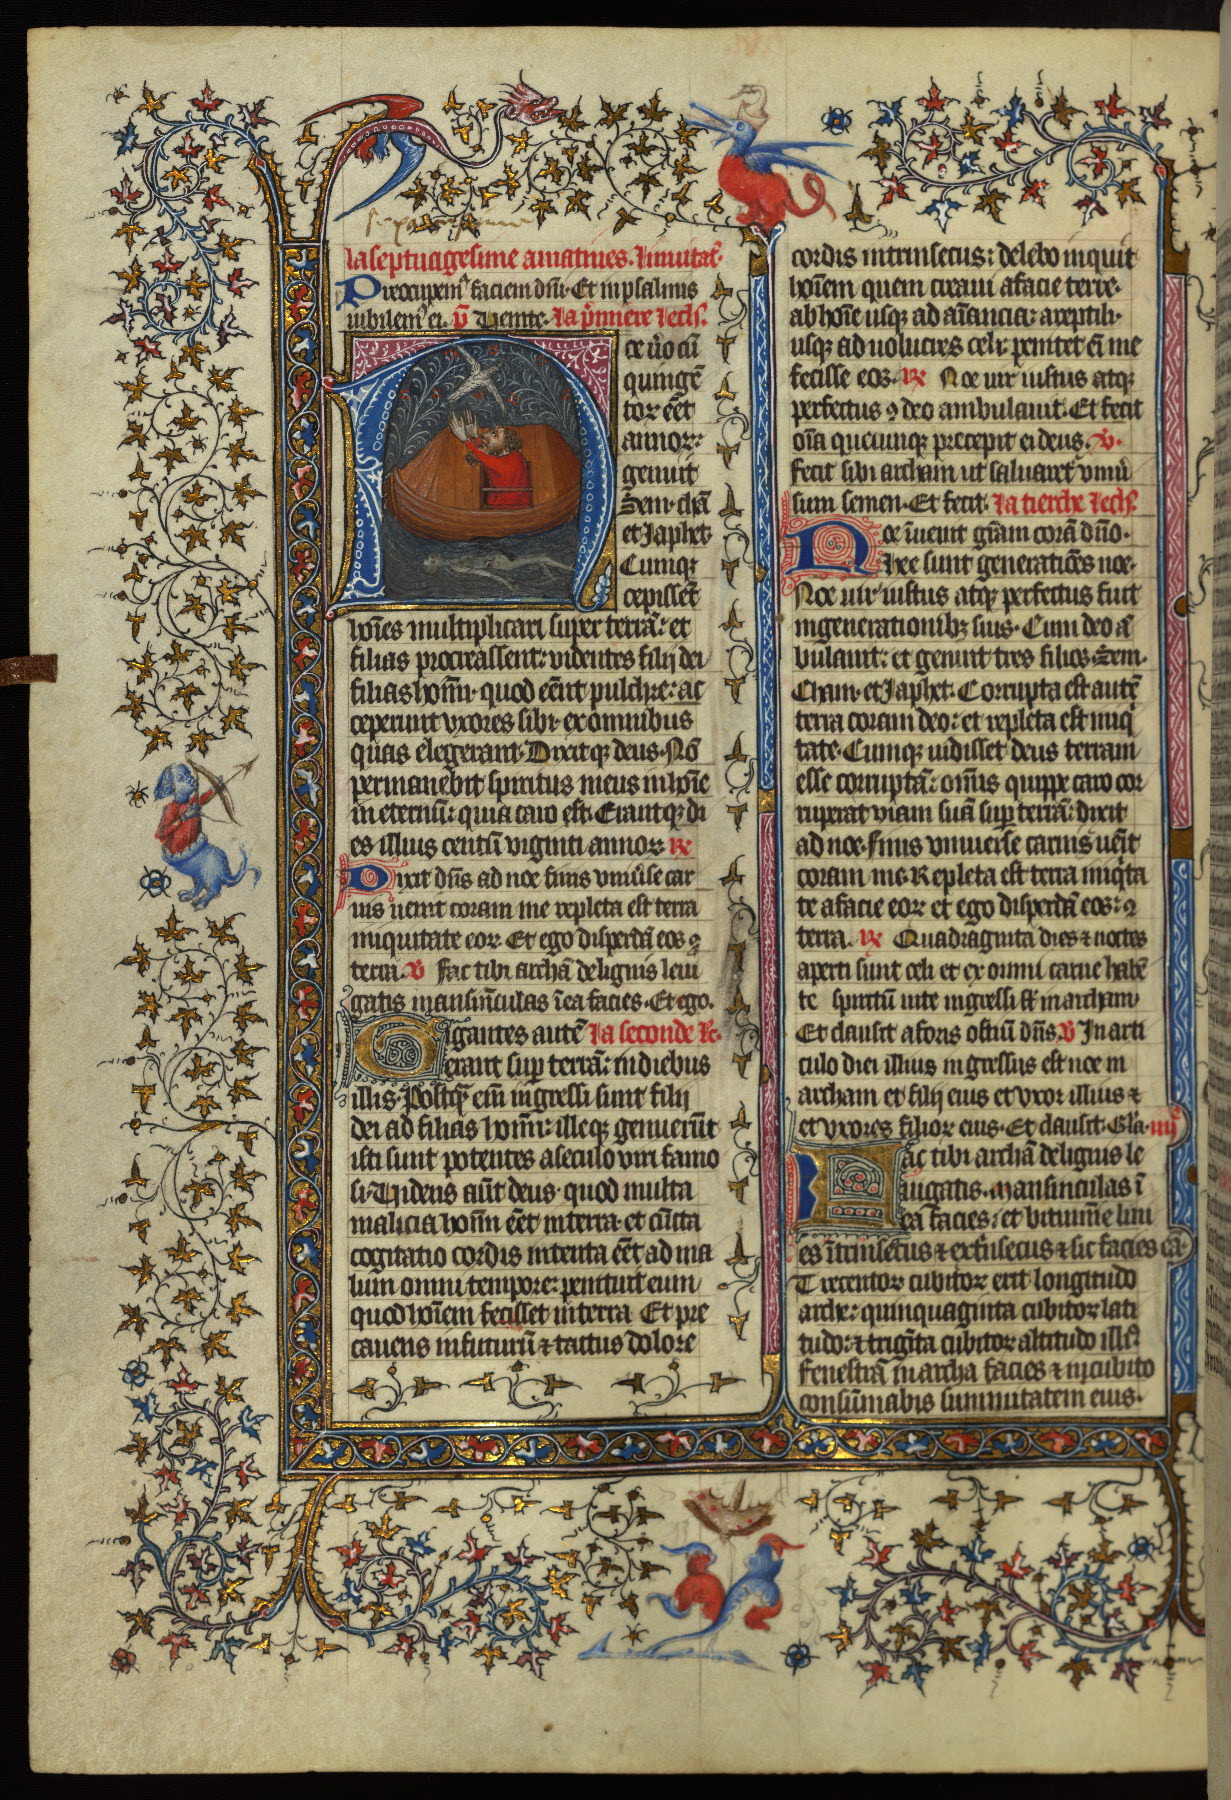 la septuagesime a matines. Inuitat'.
Preocupem' faciem dn̄i. Et in psalmis
iubilem' ei. p̄ Uenite. la p̄miere lecls'.
Noe ūo cū
quinge̅
tor ee̅t
annor:
genuit
Sem. cha̅
et Japhet.
Cumqꝫ
cepisse̅t
ho̅ies multiplicari super terra̅: et
filias procreassent: videntes filij dei
filias hom̅. quod ee̅nt pulchre: ac
ceperunt vxores sibi. ex omnibus
quas elegerant. Dixitqꝫ deus. No̅
permanebit spiritus meus in ho̅ie
in eternu̅: quia caro est. Eruntqꝫ di
es illius centu̅ viginti annoꝝ. R̷
Dixit dn̅s ad noe finis vniu̅se car
nis uenit coram me repleta est terra
iniquitate eoꝝ. Et ego disperda̅ eos ꝯ
terra. V Fac tibi archa̅ de lignis leui
gatis mansiu̅culas i̅ ea facies. Et ego.
Gigantes aute̅ la seconde le.
erant sup terra̅: in diebus
illis. Postq̅ em̅ ingressi sunt filij
dei ad filias hom̅: illeqꝫ genueru̅t
isti sunt potentes a seculo viri famo
si. Uidens au̅t deus. quod multa
malicia hom̅ ee̅t in terra. et cu̅cta
cogitatio cordis intenta ee̅t ad ma
lum omni tempore: penituit eum
quod ho̅iem fecisset in terra. Et pre
cauens in futuru̅ ⁊ tactus dolore
cordis intrinsecus: delebo inquit
ho̅iem quem creaui a facie terre.
ab ho̅ie usqꝫ ad ai̅ancia: a reptili.
usqꝫ ad uolucres celi: penitet e̅i me
fecisse eos. R̷ Noe uir iustus atqꝫ
perfectus ꝯ deo ambulauit. Et fecit
oi̅a quecunqꝫ precepit ei deus. V.
fecit sibi archam ut saluaret' vniu̅
sum semen. Et fecit. la tierche lecls'.
Noe i̅uenit gr̅am cora̅ dn̅o.
Hee sunt generatio̅es noe.
Noe uir iustus atqꝫ perfectus fuit
in generationibꝫ suis. Cum deo a̅
bulauit: et genuit tres filios. Sem.
Cham. et Japhet. Corrupta est aute̅
terra coram deo: et repleta est iniq̅
tate. Cumqꝫ uidisset deus terram
esse corrupta̅: om̅is quippe caro cor
ruperat viam sua̅ sup terra̅: dixit
ad noe. Finis vniuerse carnis ue̅it
coram me. Repleta est terra iniq̅ta
te a facie eoꝝ et ego disperda̅ eos: ꝯ
terra. R̷ Quadraginta dies ⁊ noctes
aperti sunt celi et ex omni carne habe̅
te spiritu̅ uite ingressi st̅ in archam
Et clausit a foris ostiu̅ dn̅s. V In arti
culo diei illius ingressus est noe in
archam et filij eius et vxor illius ⁊
et vxores filioꝝ eius. Et clausit. Gl̅a. iiij
Fac tibi archa̅ de lignis le
uigatis. mansiu̅culas i̅
ea facies: et bitumi̅e lini
es i̅trinsecus ⁊ ext̅nsecus ⁊ sic facies ea̅.
Trecentoꝝ cubitoꝝ erit longitudo
arche: quinquaginta cubitoꝝ lati
tudo: ⁊ trigi̅ta cubitoꝝ altitudo illi'.
fenestra̅ in archa facies ⁊ in cubito
consu̅mabis summitatem eius.